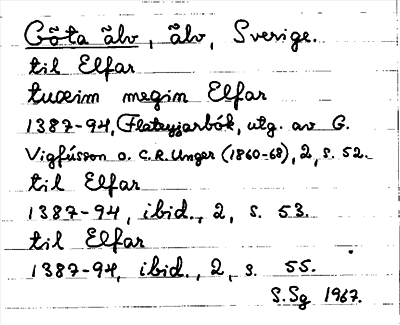 Göta älv, älv, Sverige.
til Elfar
tueim megin Elfar
1387-94, Flateyjarbók, utg. av G.
Vigfússon o. C.R. Unger (1860-68), 2, s. 52.
til Elfar
1387-94, ibid., 2, s. 53.
til Elfar
1387-94, ibid., 2, s. 55.
S.Sg 1967.